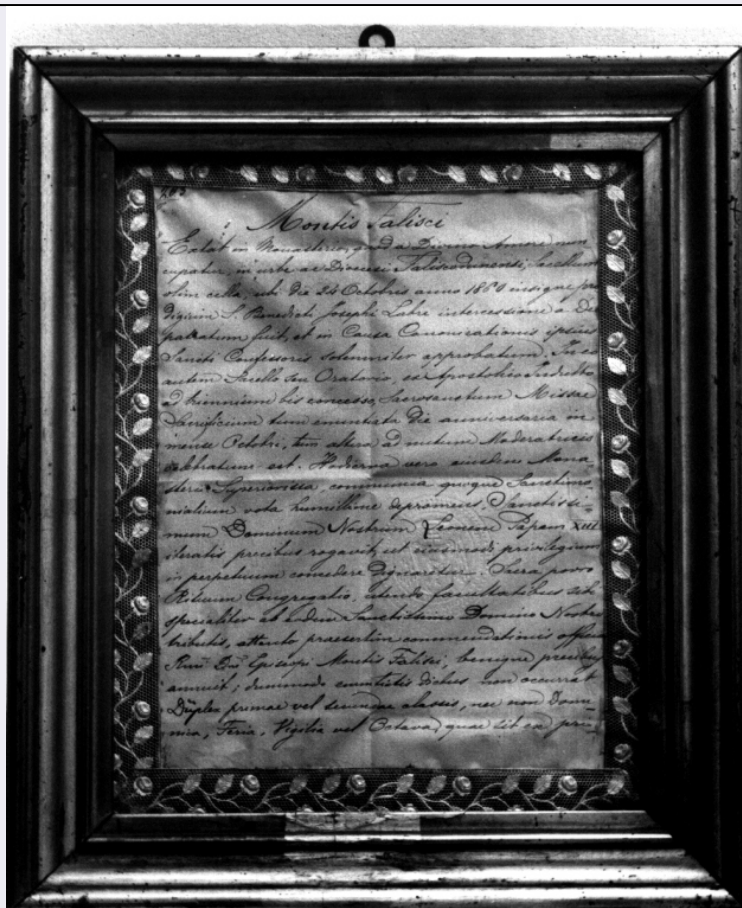 263
Montis Falisci
Extat in Monasterio, quod a Divino Amore nun-
cupatur, in urbe ac Dioecesi Faliscodunensi, Sacellum
olim cella, ubi die 24 Octobris anno 1860 insigne pro
digium S. Benedicti Josephi Labre intercessione a Deo
patratum fuit, et in Causa Canonizationis ipsius
Sancti Confessoris solemniter approbatum. In eo
autem Sacello seu Oratorio, ex Apostolico Indulto
ad triennium bis concesso, Sacrosanctum Missae
Sacrificium tum enuntiata die anniversaria in
mense Octobri, tum altera ad nutum Moderatricis
celebratum est. Hodierna vero eiusdem Mona-
sterii Superiorissa, communia quoque Sanctimo
nialium vota humillime depromens, Sanctissi-
mum Dominum Nostrum Leonem Papam XIII
iteratis precibus rogavit, ut eiusmodi privilegium
in perpetuum concedere dignaretur. Sacra porro
Rituum Congregatio, utendo facultatibus sibi
specialiter ab eodem Sanctissimo Domino Nostro
tributis, attento praesertim commendationis officio
Rmi Dni Episcopi Montis Falisci, benigne precibus
annuit; dummodo enuntiatis diebus non occurrat
Duplex primae vel secundae classis, nec non Domi-
nica, Feria, Vigilia vel Octava, quae sit ex pri-